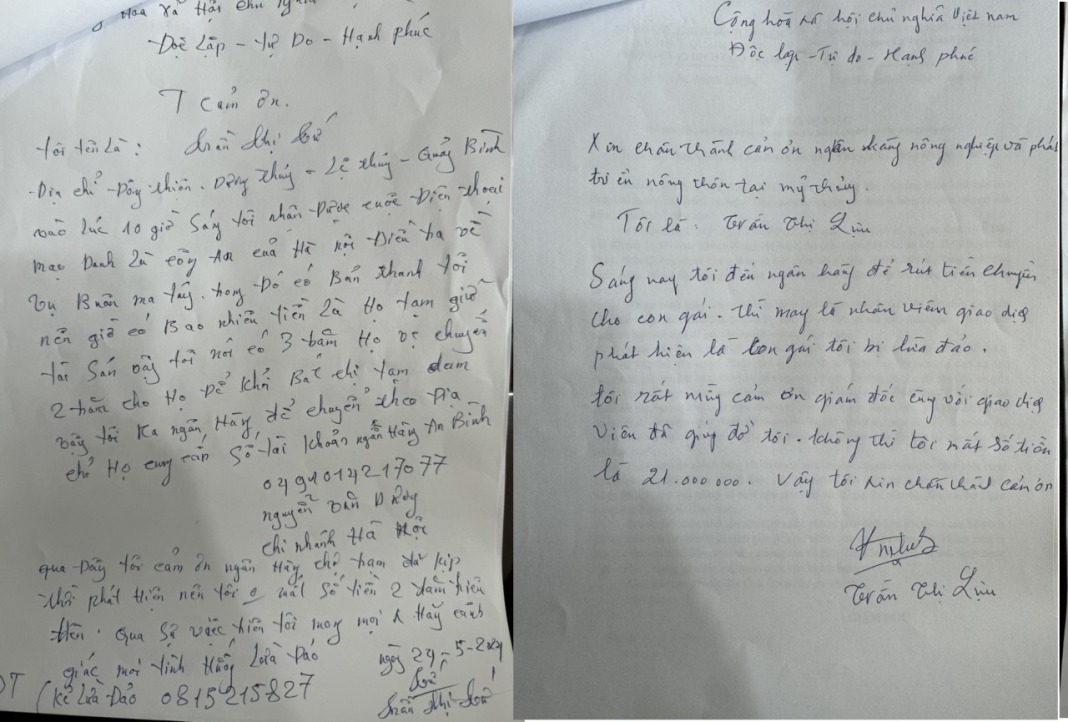 Hòa xã Hội chủ ngh
Độc Lập - Tự Do - Hạnh phúc
T cảm ơn.
tôi tên là: Trần thị
Địa chỉ - Đông thiện. Dương thủy - Lệ thủy - Quảng Bình
vào lúc 10 giờ sáng tôi nhận được cuộc Điện thoại
mạo Danh là công An của Hà nội Điều tra về
vụ Buôn ma túy. trong Đó có Bán thanh tôi
nên giờ có Bao nhiêu tiền là Họ tạm giữ
tài sản vậy tôi nói có 3 trăm Họ chuyển
2 trăm cho Họ Để khỏi Bắt chị tạm dam
vậy tôi ra ngân Hàng để chuyển theo Địa
chỉ Họ cung cấp số tài khoản ngân Hàng An Bình
0491014217077
nguyễn văn Dũng
chi nhánh Hà Nội
qua Đây tôi cảm ơn ngân Hàng chợ trạm đã kịp
thời phát Hiện nên tôi 0 mất số tiền 2 trăm triệu
tiền. Qua sự việc trên tôi mong mọi Hãy cảnh
giác mọi tình Huống Lừa Đảo ngày 24-5-2024
ĐT (kẻ Lừa Đảo 0815215827
Trần thị
Cộng hòa xã hội chủ nghĩa Việt nam
Độc lập - Tự do - Hạnh phúc
Xin chân thành cản ơn ngân hàng nông nghiệp và phát
triển nông thôn tại mỹ thủy.
Tôi là: Trần Thị Lựu
Sáng nay tôi đến ngân hàng để rút tiền chuyển
cho con gái. thì may là nhân viêm giao dịc
phát hiện là con gái tôi bi lừa đảo.
tôi rất mừng cảm ơn giám đốc cùng với giao dịc
viên đã giúp đỡ tôi. không thì tôi mất số tiền
là 21.000.000. Vậy tôi xin chân thành cản ơn
Trần Thị Lựu